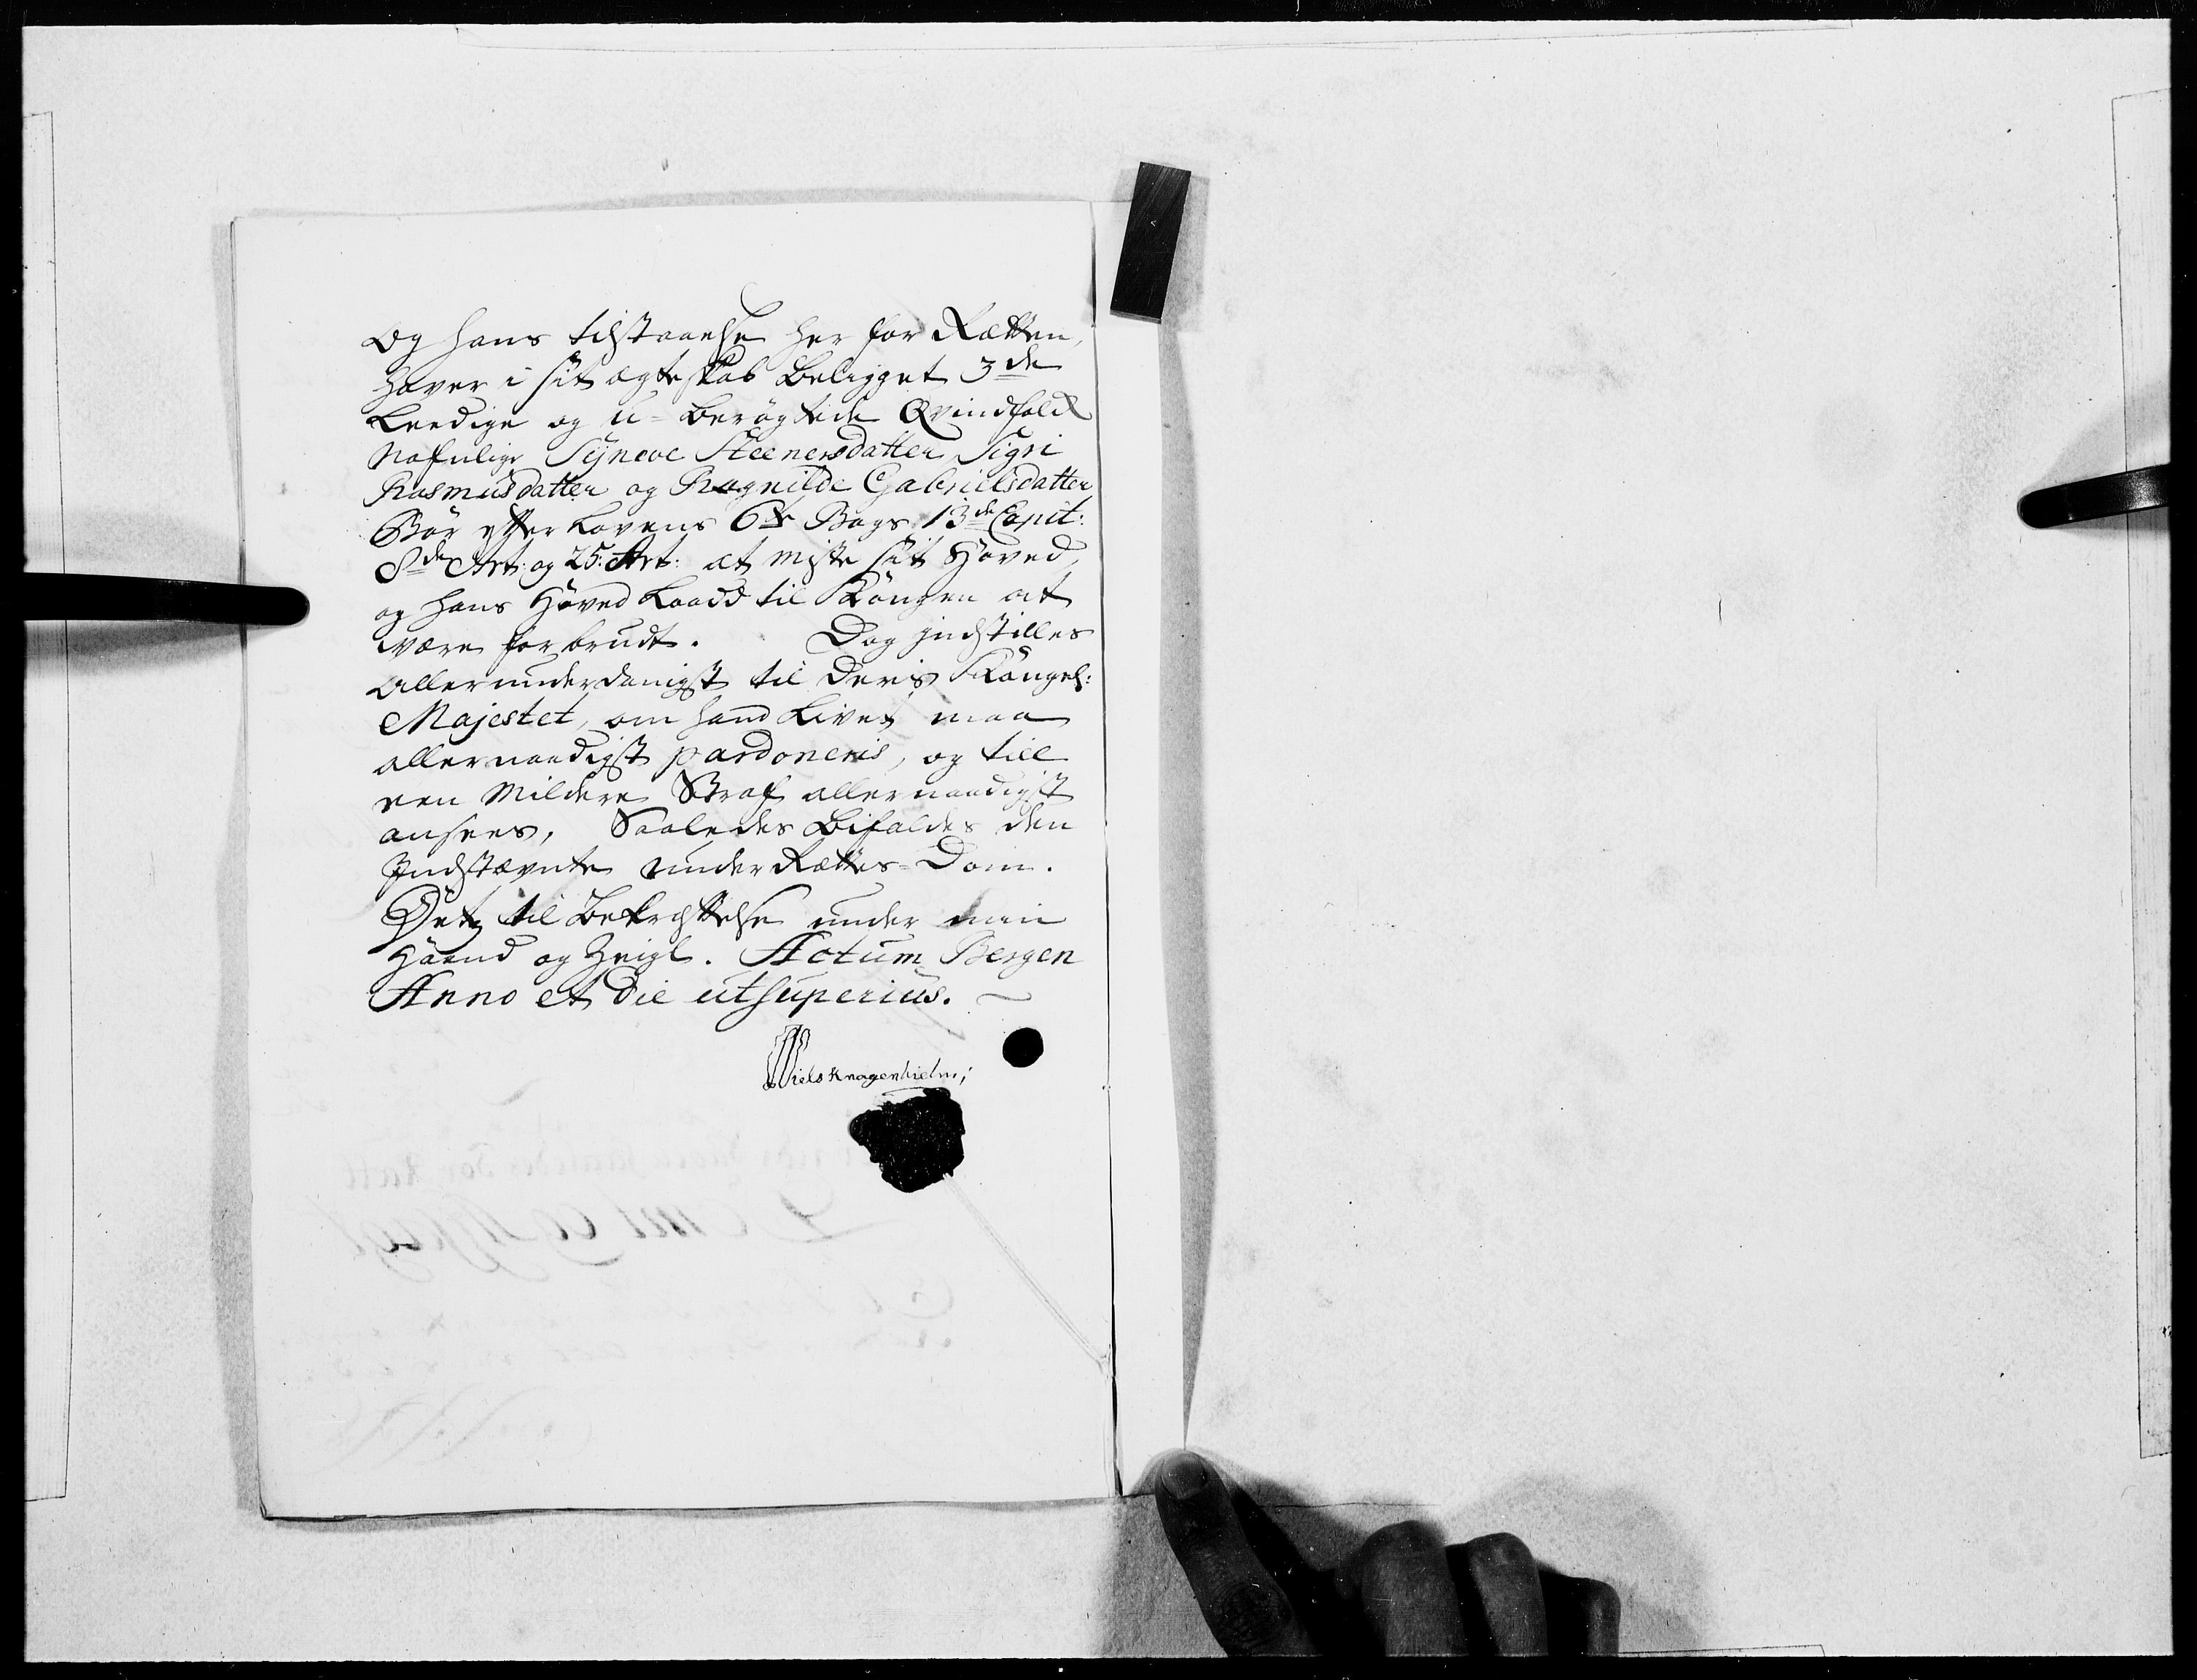 Og hans tilstaaelse her for Rætten,
haver i sit ægteskab Beligget 3de
Leedige og u-berøgtede Qvindfolk
Nafnlige Synove Steenersdatter Sigri
Rasmusdatter og Ragnilde Gabrielsdatter
Bør efter Lovens 6te Bogs 13de Capit:
8de Art: og 25: Art: at miste sit Hoved,
og hans Hoved Laadd til Kongen at
være forbrudt. Dog Indstilles
Allerunderdanigst til Deris Kongel:
Majestet, om hand Livet maa
allernaadigst pardoneris, og till
een Mildere Straf allernaadigst
ansees, Saaledes Bifaldes den
Indstævnte Under Rættes-Dom.
Dets til Bekræftelse under min
Haand og Zeigl. Actum Bergen
Anno et Die ut superius.
Niels Knagenhielm;